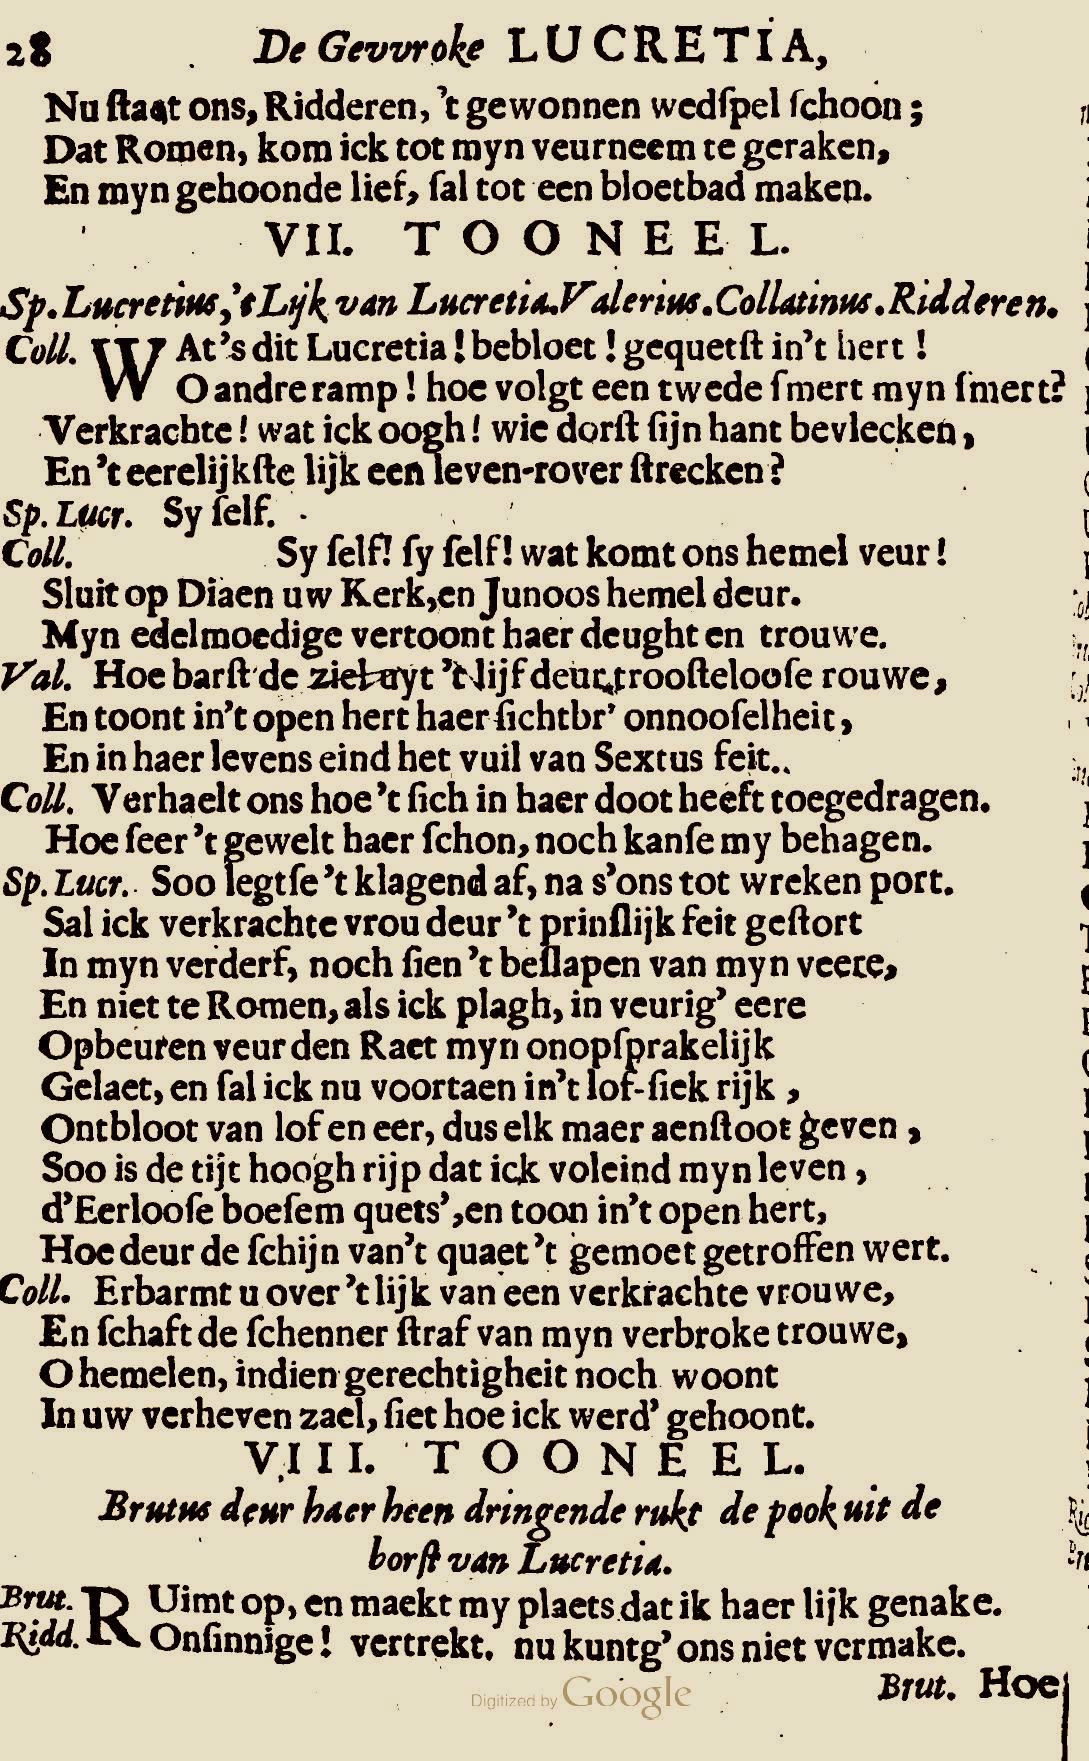 28 De Gevvroke LUCRETIA,
Nu ſtaat ons, Ridderen, 't gewonnen wedſpel ſchoon;
Dat Romen, kom ick tot myn veurneem te geraken,
En myn gehoonde lief, ſal tot een bloetbad maken.
VII. TOONEEL.
Sp. Lucretius, 't Lijk van Lucretia. Valerius. Collatinus. Ridderen.
Coll. WAt's dit Lucretia! bebloet! gequetſt in't hert!
O andre ramp! hoe volgt een twede ſmert myn ſmert?
Verkrachte! wat ick oogh! wie dorſt ſijn hant bevlecken,
En 't eerelijkſte lijk een leven-rover ſtrecken?
Sp. Lucr. Sy ſelf.
Coll. Sy ſelf! ſy ſelf! wat komt ons hemel veur!
Sluit op Diaen uw Kerk, en Junoos hemel deur.
Myn edelmoedige vertoont haer deught en trouwe.
Val. Hoe barſt de ziel uyt 't lijf deur trooſteloofe rouwe,
En toont in't open hert haer ſichtbr' onnooſelheit,
En in haer levens eind het vuil van Sextus feit..
Coll. Verhaelt ons hoe 't ſich in haer doot heeft toegedragen.
Hoe ſeer 't gewelt haer ſchon, noch kanſe my behagen.
Sp. Lucr. Soo legtſe 't klagend af, na s'ons tot wreken port.
Sal ick verkrachte vrou deur 't prinſlijk feit geſtort
In myn verderf, noch ſien 't beſlapen van myn veere,
En niet te Romen, als ick plagh, in veurig' eere
Opbeuren veur den Raet myn onopſprakelijk
Gelaet, en ſal ick nu voortaen in't lof-ſiek rijk,
Ontbloot van lof en eer, dus elk maer aenſtoot geven,
Soo is de tijt hoogh rijp dat ick voleind myn leven,
d'Eerlooſe boeſem quets', en toon in't open hert,
Hoe deur de ſchijn van't quaet 't gemoet getroffen wert.
Coll. Erbarmt u over 't lijk van een verkrachte vrouwe,
En ſchaft de ſchenner ſtraf van myn verbroke trouwe,
O hemelen, indien gerechtigheit noch woont
In uw verheven zael, ſiet hoe ick werd' gehoont.
VIII. TOONEEL.
Brutus deur haer heen dringende rukt de pook uit de
borſt van Lucretia.
Brut. RUimt op, en maekt my plaets dat ik haer lijk genake.
Ridd. Onſinnige! vertrekt. nu kuntg' ons niet vermake.
Brut. Hoe
Digitized by Google